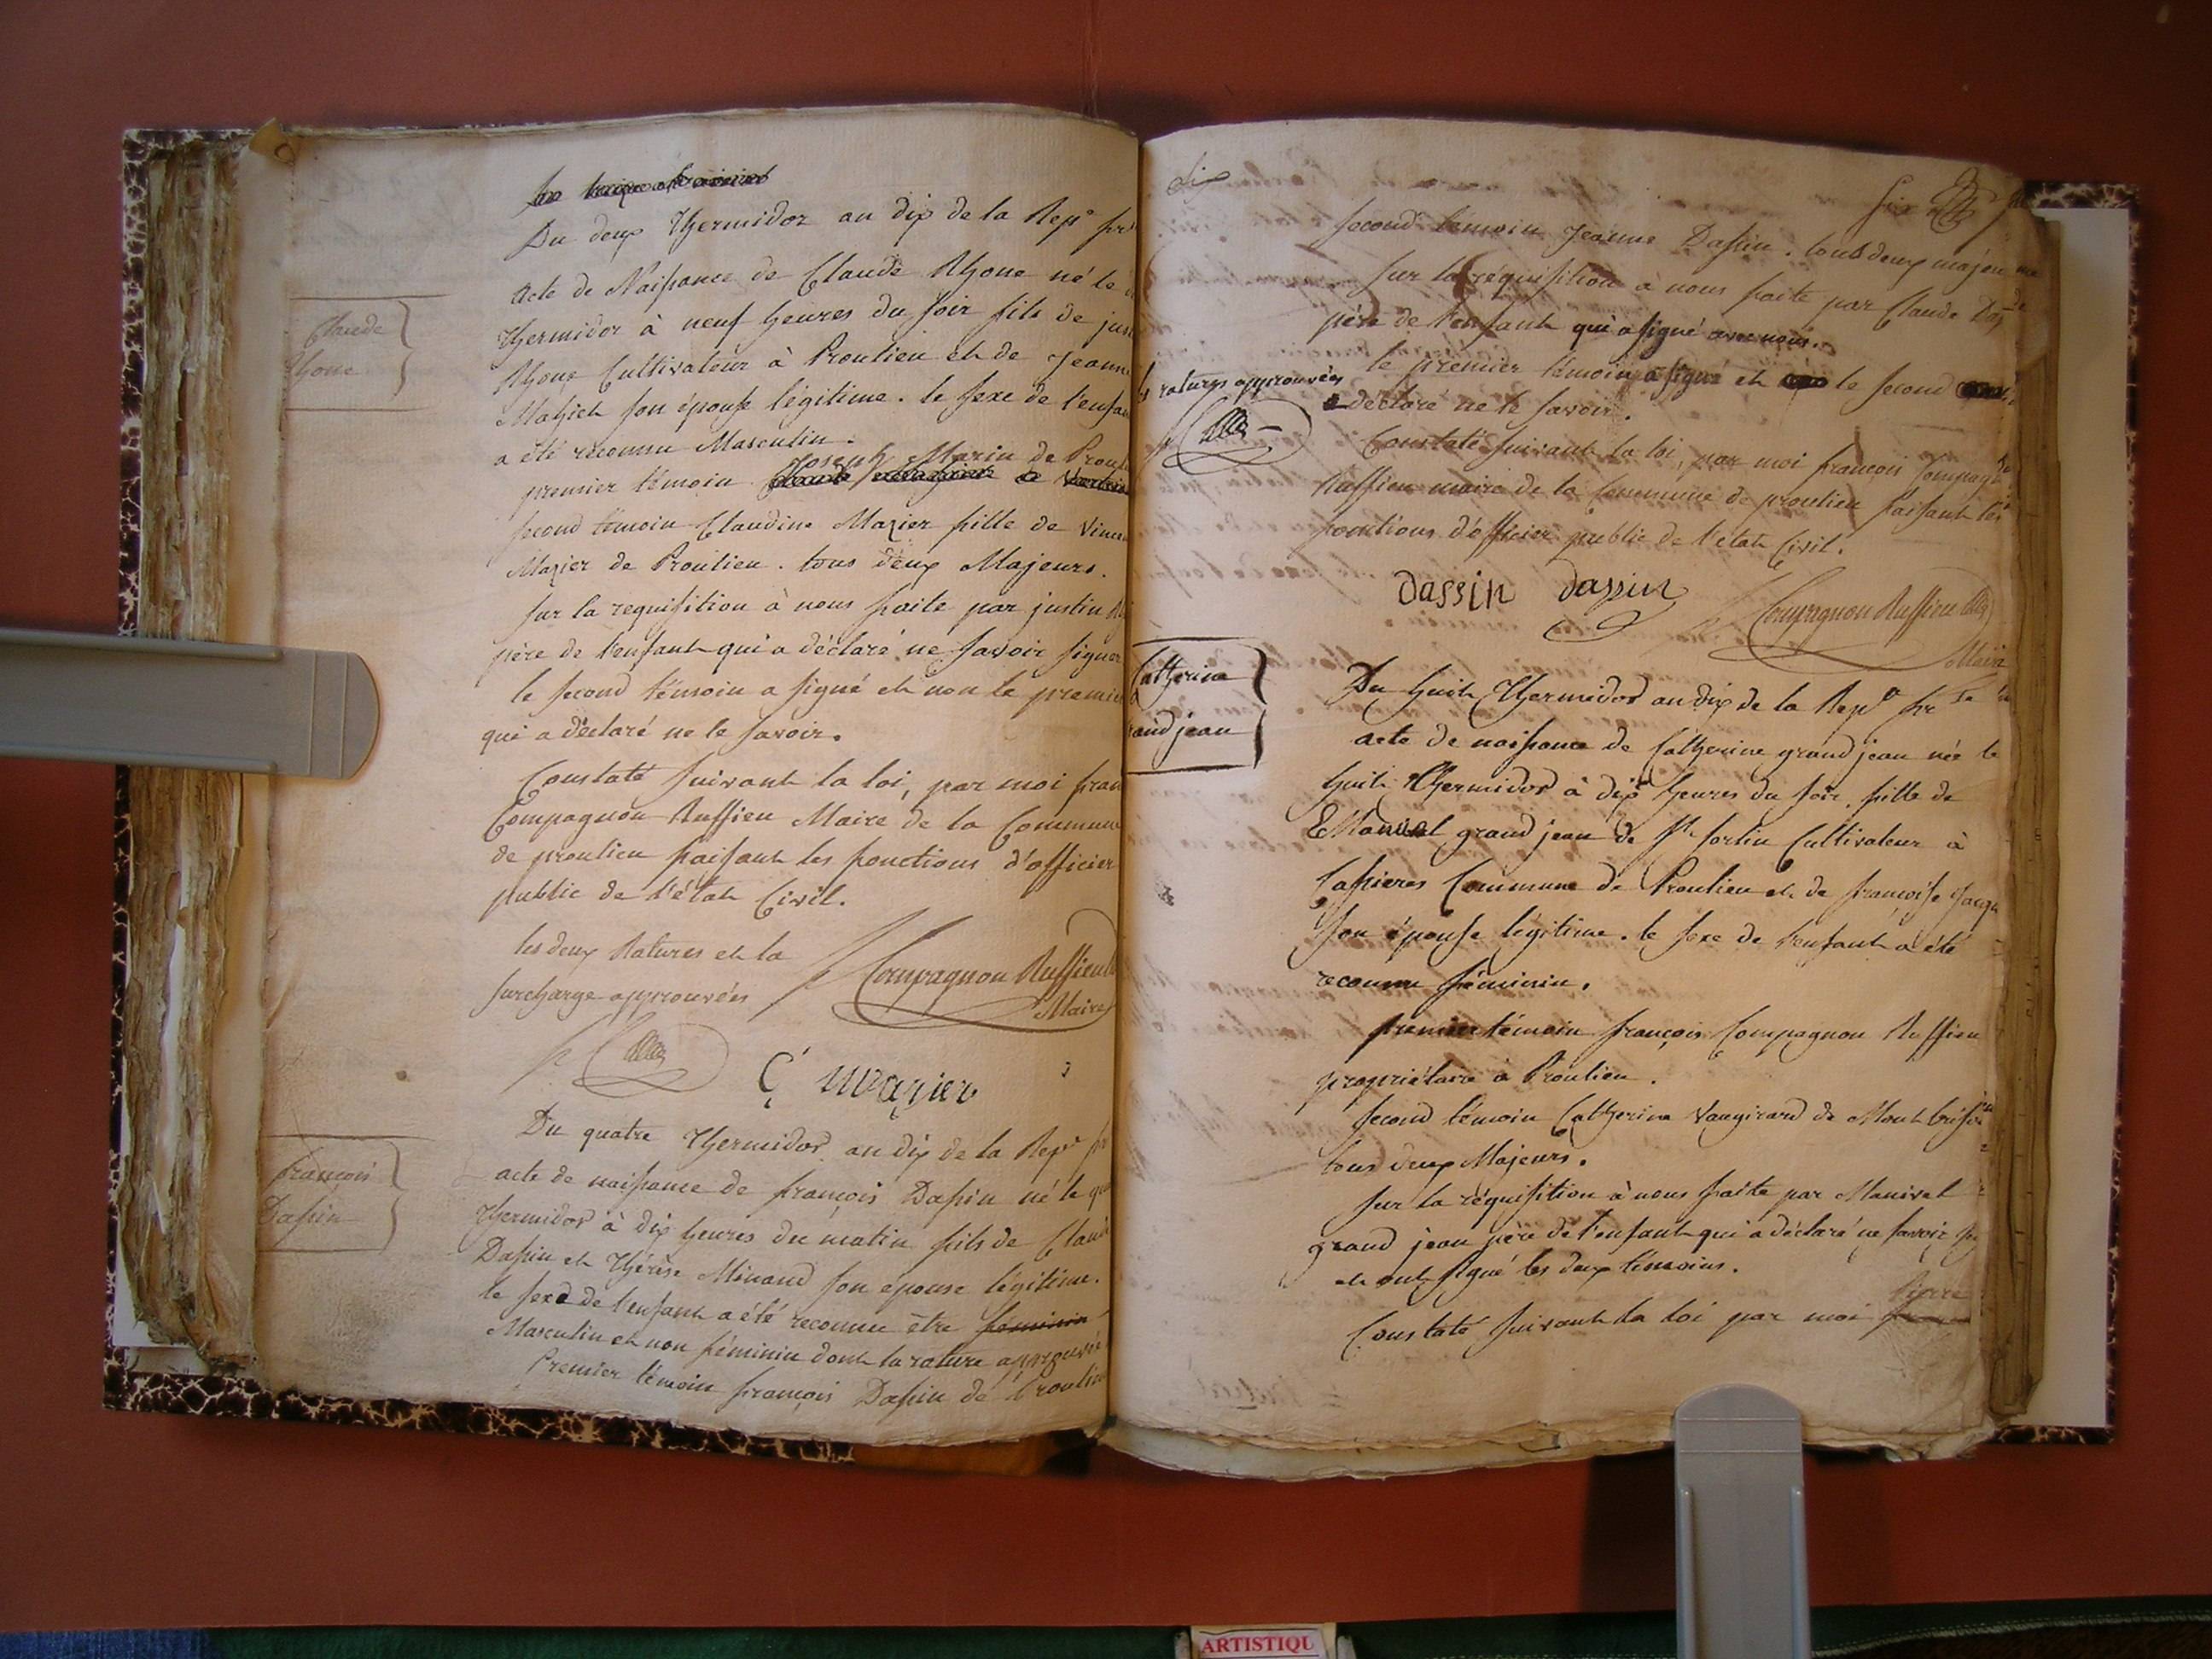 Du deux Thermidor an dix de la Repe
acte de Naissance de Claude Rhone né le
Thermidor à neuf heures du soir fils de
Rhone Cultivateur à Proulieu et de
son épouse légitime. le sexe de
a été reconnu Masculin.
Joseph Marin de
premier témoin
second témoin Claudine Mazier fille de
Mazier de Proulieu. tous deux Majeurs.
sur la requisition à nous faite par justin
père de l'enfant qui a déclaré ne savoir signer
le second témoin a signé et non le
qui a déclaré ne le savoir.
Constaté suivant la loi, par moi
Compagnon Ruffieu Maire de la Commune
de proulieu faisant les fonctions d'officier
public de l'état Civil.
les deux Ratures et la
surcharge approuvées
Compagnon Ruffieu
Maire
C mazier
Claude
Rhone
Du quatre Thermidor an dix de la Repe
acte de naissance de françois Dassin né le
Thermidor à dix heures du matin fils de
Dassin et Thérèse Minand son epouse légitime.
le sexe de l'enfant a été reconnu être féminin
Masculin et non féminin dont la rature approuvée
Premier témoin françois Dassin de
françois
Dassin
dix
second témoin Jeanne Dassin. tous deux
sur la réquisition à nous faite par Claude
père de l'enfant qui a signé avec nous.
le premier témoin a signé et le second
a déclaré ne le savoir.
ratures approuvées
Constaté suivant la loi, par moi françois
Ruffieu maire de la Commune de proulieu faisant les
fonctions d'officier public de l'état Civil.
dassin dassin
Compagnon Ruffieu
Maire
Catherine
jean
Du huit Thermidor an dix de la Repe
acte de naissance de Catherine grand jean née le
huit Thermidor à dix heures du soir. fille de
grand jean de St Sorlin Cultivateur à
Commune de Proulieu et de françoise
son épouse légitime. le sexe de l'enfant a été
reconnu féminin.
premier témoin françois Compagnon Ruffieu
propriétaire à Proulieu.
second témoin Catherine Vaugirard de
tous deux Majeurs.
sur la réquisition à nous faite par Manival
grand jean père de l'enfant qui a déclaré ne savoir
et ont signé les deux témoins.
Constaté suivant la loi par moi
ARTISTIQU